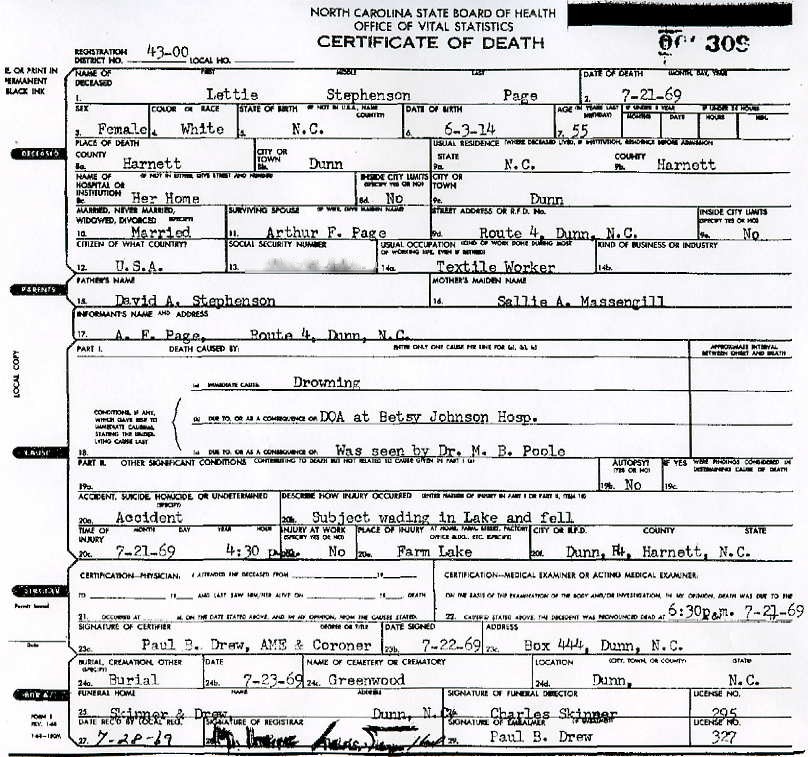 NORTH CAROLINA STATE BOARD OF HEALTH
OFFICE OF VITAL STATISTICS
CERTIFICATE OF DEATH
309
REGISTRATION DISTRICT NO. 43-00 LOCAL NO.
E, OR PRINT IN PERMANENT BLACK INK
NAME OF DECEASED FIRST MIDDLE LAST DATE OF DEATH (MONTH, DAY, YEAR)
1. Lettie Stephenson Page 2. 7-21-69
SEX COLOR OR RACE STATE OF BIRTH (IF NOT IN U.S.A., NAME COUNTRY) DATE OF BIRTH AGE (IN YEARS LAST BIRTHDAY) IF UNDER 1 YEAR IF UNDER 24 HOURS
MONTHS DAYS HOURS MIN.
3. Female 4. White 5. N.C. 6. 6-3-14 7. 55
DECEASED
PLACE OF DEATH USUAL RESIDENCE (WHERE DECEASED LIVED, IF INSTITUTION, RESIDENCE BEFORE ADMISSION)
COUNTY CITY OR TOWN STATE COUNTY
8a. Harnett 8b. Dunn 9a. N.C. 9b. Harnett
NAME OF HOSPITAL OR INSTITUTION (IF NOT IN EITHER, GIVE STREET AND NUMBER) INSIDE CITY LIMITS (SPECIFY YES OR NO) CITY OR TOWN
8c. Her Home 8d. No 9c. Dunn
MARRIED, NEVER MARRIED, WIDOWED, DIVORCED (SPECIFY) SURVIVING SPOUSE (IF WIFE, GIVE MAIDEN NAME) STREET ADDRESS OR R.F.D. No. INSIDE CITY LIMITS (SPECIFY YES OR NO)
10. Married 11. Arthur F. Page 9d. Route 4, Dunn, N.C. 9e. No
CITIZEN OF WHAT COUNTRY? SOCIAL SECURITY NUMBER USUAL OCCUPATION (KIND OF WORK DONE DURING MOST OF WORKING LIFE, EVEN IF RETIRED) KIND OF BUSINESS OR INDUSTRY
12. U.S.A. 13. 14a. Textile Worker 14b.
PARENTS
FATHER'S NAME MOTHER'S MAIDEN NAME
15. David A. Stephenson 16. Sallie A. Massengill
INFORMANT'S NAME AND ADDRESS
17. A. F. Page, Route 4, Dunn, N.C.
LOCAL COPY
PART I. DEATH CAUSED BY: ENTER ONLY ONE CAUSE PER LINE FOR (a), (b), (c) APPROXIMATE INTERVAL BETWEEN ONSET AND DEATH
(a) IMMEDIATE CAUSE Drowning
CONDITIONS, IF ANY, WHICH GAVE RISE TO IMMEDIATE CAUSE(a), STATING THE UNDERLYING CAUSE LAST
(b) DUE TO, OR AS A CONSEQUENCE OF: DOA at Betsy Johnson Hosp.
CAUSE
18. (c) DUE TO, OR AS A CONSEQUENCE OF: Was seen by Dr. M. B. Poole
PART II. OTHER SIGNIFICANT CONDITIONS CONTRIBUTING TO DEATH BUT NOT RELATED TO CAUSE GIVEN IN PART I (a) AUTOPSY? (YES OR NO) IF YES WERE FINDINGS CONSIDERED IN DETERMINING CAUSE OF DEATH
19a. 19b. No 19c.
ACCIDENT, SUICIDE, HOMICIDE, OR UNDETERMINED (SPECIFY) DESCRIBE HOW INJURY OCCURRED (ENTER NATURE OF INJURY IN PART I OR PART II, ITEM 18)
20a. Accident 20b. Subject wading in Lake and fell
TIME OF INJURY MONTH DAY YEAR HOUR INJURY AT WORK (SPECIFY YES OR NO) PLACE OF INJURY AT HOME, FARM, STREET, FACTORY, OFFICE BLDG., ETC. (SPECIFY) CITY OR R.F.D. COUNTY STATE
20c. 7-21-69 4:30 p No 20e. Farm Lake 20f. Dunn, R4, Harnett, N.C.
CERTIFICATION—PHYSICIAN: I ATTENDED THE DECEASED FROM 19 CERTIFICATION—MEDICAL EXAMINER OR ACTING MEDICAL EXAMINER:
TO 19 AND LAST SAW HIM/HER ALIVE ON 19 DEATH ON THE BASIS OF THE EXAMINATION OF THE BODY AND/OR INVESTIGATION, IN MY OPINION, DEATH WAS DUE TO THE
21. OCCURRED AT M. ON THE DATE STATED ABOVE, AND IN MY OPINION, FROM THE CAUSES STATED. 22. CAUSE(S) STATED ABOVE. THE DECEDENT WAS PRONOUNCED DEAD AT 6:30p.m. 7-21-69
SIGNATURE OF CERTIFIER DEGREE OR TITLE DATE SIGNED ADDRESS
23a. Paul B. Drew, AME & Coroner 23b. 7-22-69 23c. Box 444, Dunn, N.C.
BURIAL, CREMATION, OTHER (SPECIFY) DATE NAME OF CEMETERY OR CREMATORY LOCATION (CITY, TOWN, OR COUNTY) STATE
24a. Burial 24b. 7-23-69 24c. Greenwood 24d. Dunn, N.C.
FUNERAL HOME NAME ADDRESS SIGNATURE OF FUNERAL DIRECTOR LICENSE NO.
25. Skinner & Drew Dunn, N.C. 26. Charles Skinner 295
FORM 8 REV. 1-68
DATE REC'D BY LOCAL REG. SIGNATURE OF REGISTRAR SIGNATURE OF EMBALMER LICENSE NO.
27. 7-28-69 28. 29. Paul B. Drew 327